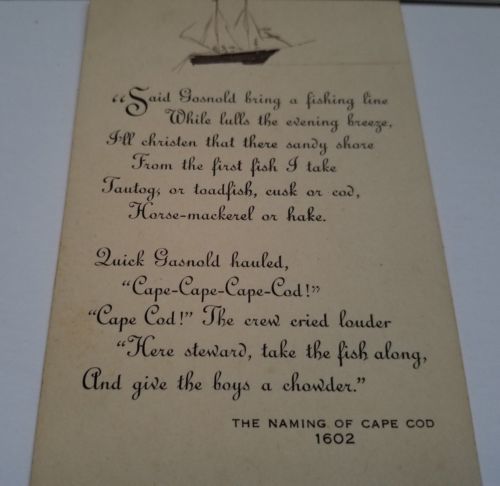 “Said Gosnold bring a fishing line
While lulls the evening breeze,
I'll christen that there sandy shore
From the first fish I take
Tautog, or toadfish, cusk or cod,
Horse-mackerel or hake.
Quick Gasnold hauled,
“Cape-Cape-Cape-Cod!”
“Cape Cod!” The crew cried louder
“Here steward, take the fish along,
And give the boys a chowder.”
THE NAMING OF CAPE COD
1602